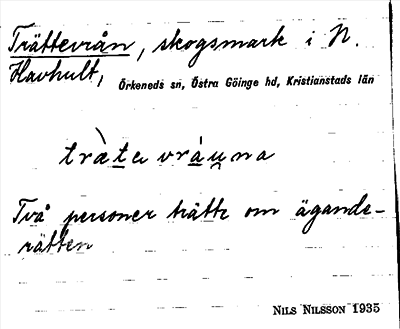 Trättevrån, skogsmark i N.
Havhult,
Örkeneds sn, Östra Göinge hd, Kristianstads län
tràta vråuna
Två personer trätte om ägande-
rätten
NILS NILSSON 1935